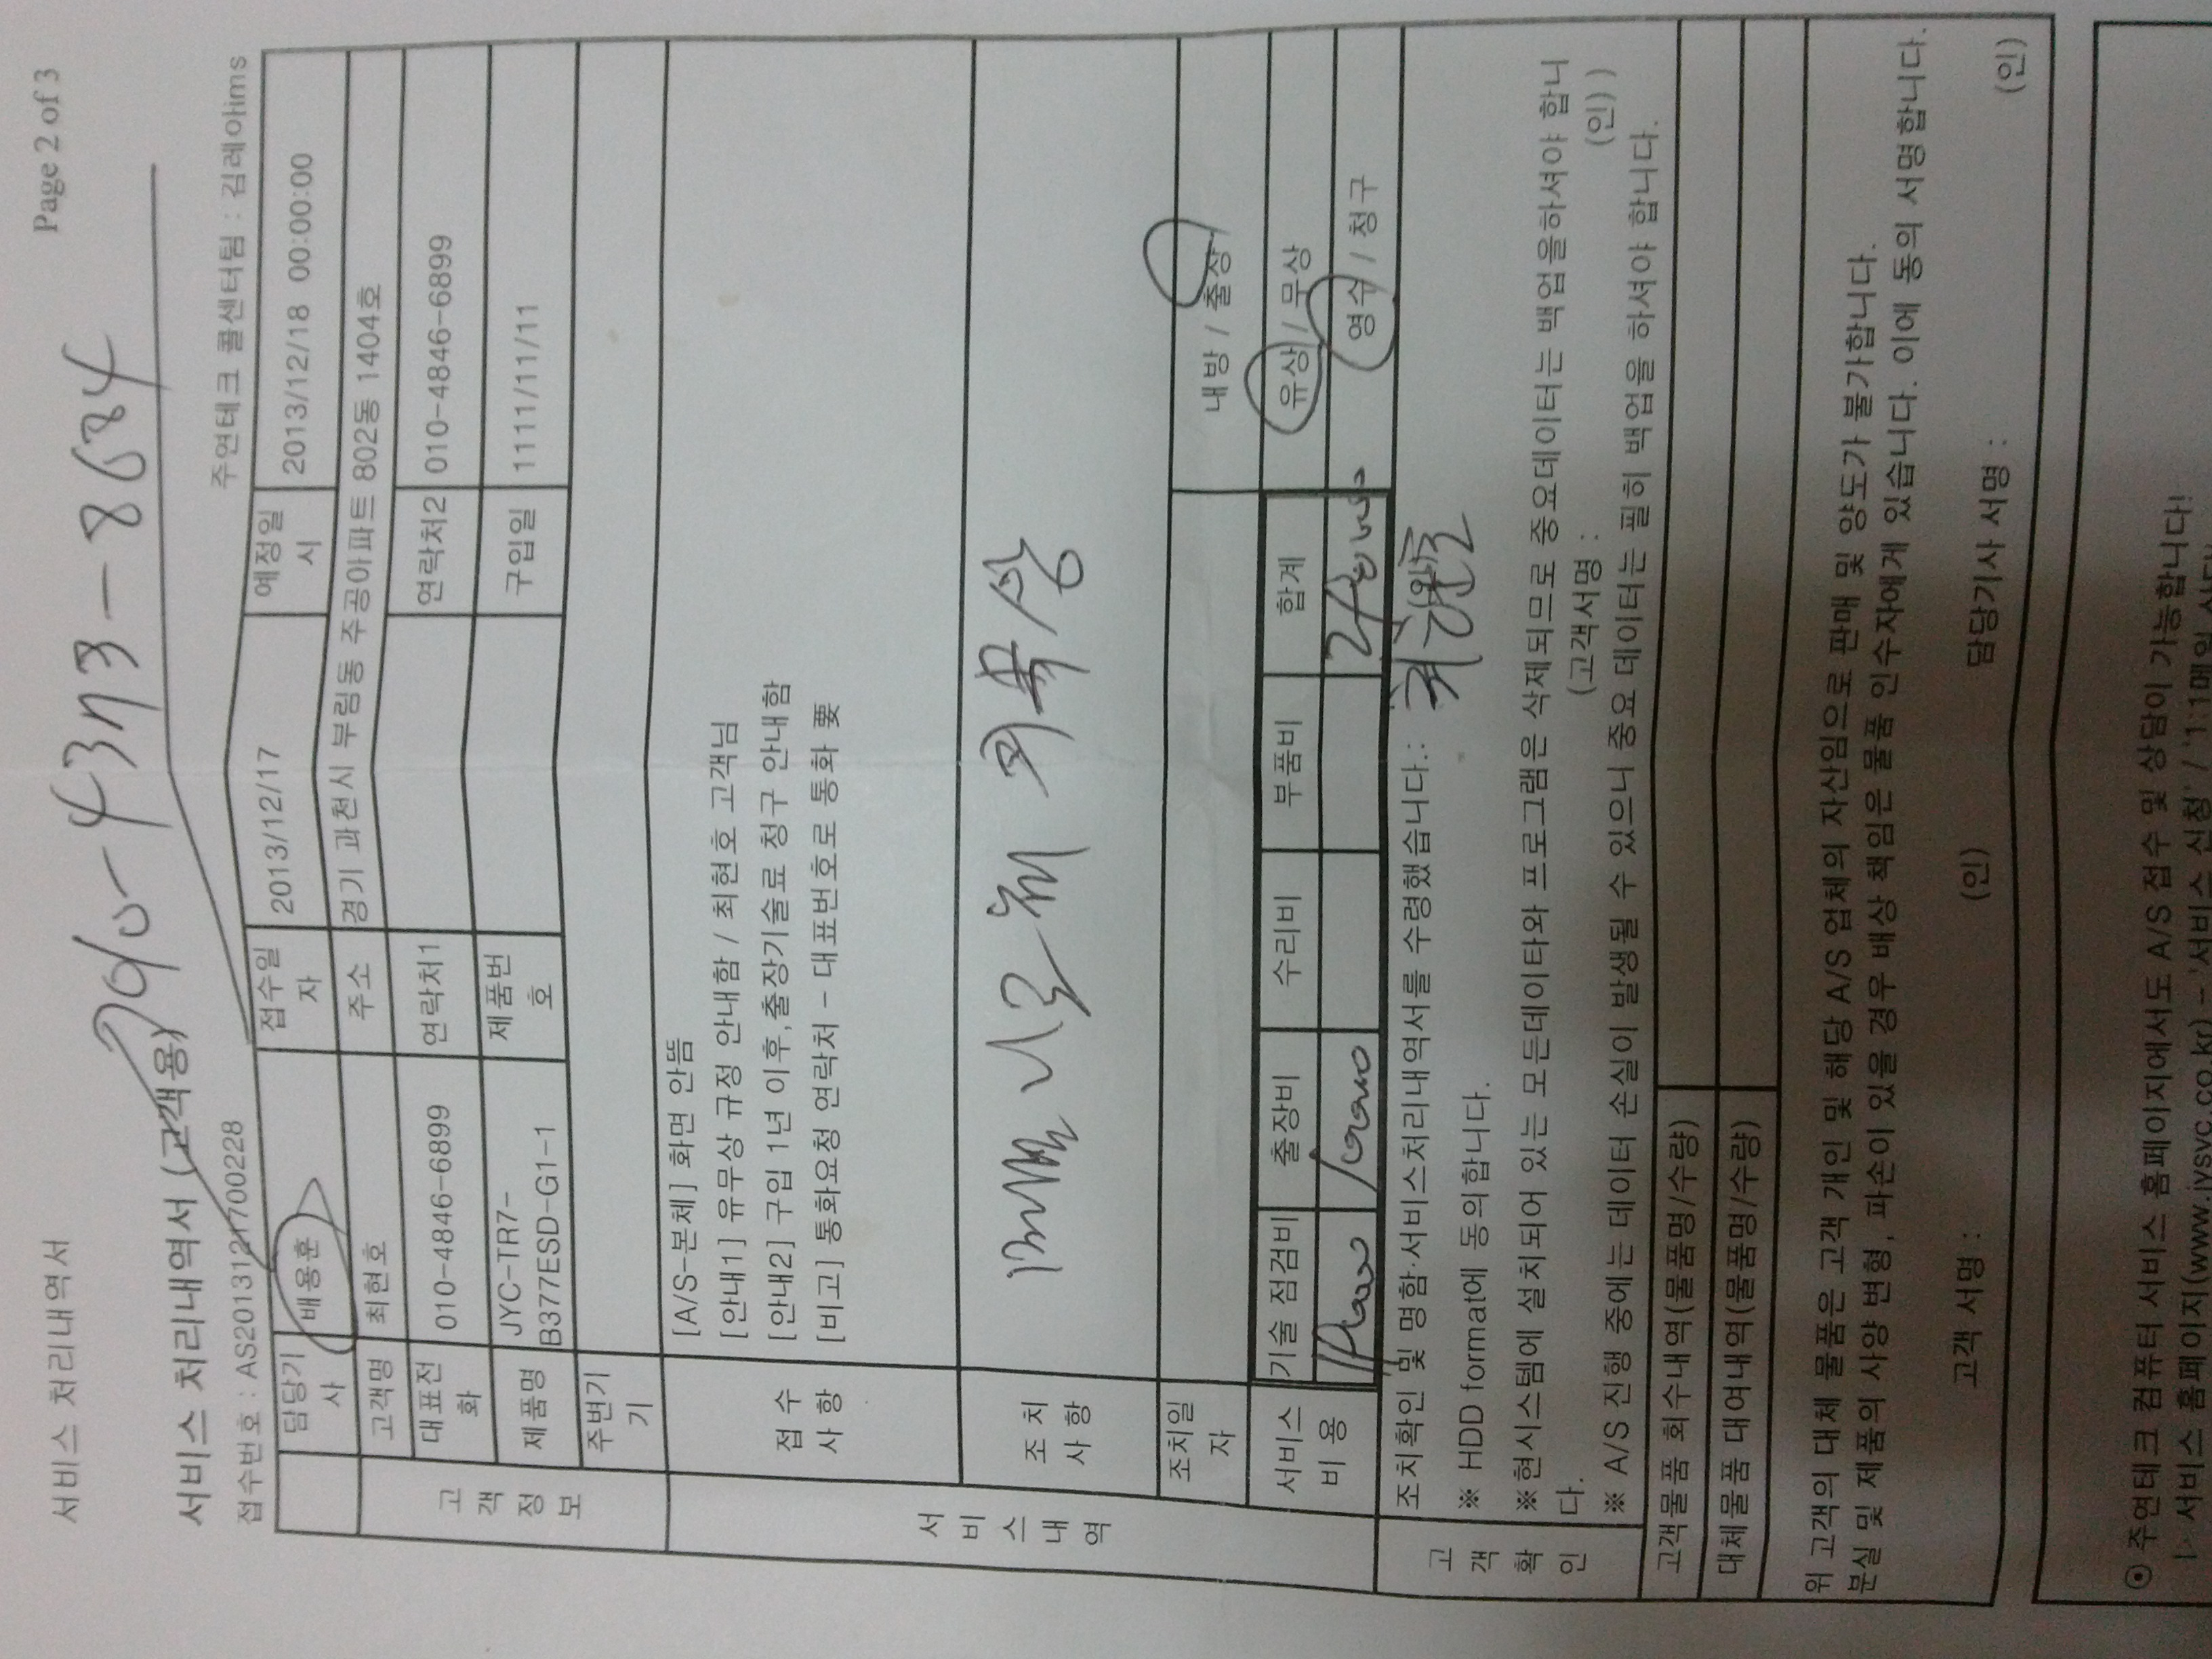 서비스 처리내역서
Page 2 of 3
서비스 처리내역서 (고객용)
접수번호 : AS2013121700228
주연테크 콜센터팀 : 김레아ims
담당기사 배용훈 접수일자 2013/12/17 예정일시 2013/12/18 00:00:00
고객정보
고객명 최현호 주소 경기 과천시 부림동 주공아파트 802동 1404호
대표전화 010-4846-6899 연락처1 연락처2 010-4846-6899
제품명 JYC-TR7-B377ESD-G1-1 제품번호 구입일 1111/11/11
주변기기
서비스내역
접수사항
[A/S-본체] 화면 안뜸
[안내1] 유무상 규정 안내함 / 최현호 고객님
[안내2] 구입 1년 이후,출장기술료 청구 안내함
[비고] 통화요청 연락처 - 대표번호로 통화 要
조치사항
조치일자 내방 / 출장
서비스비용 기술 점검비 출장비 수리비 부품비 합계 유상 / 무상
영수 / 청구
고객확인
조치확인 및 명함·서비스처리내역서를 수령했습니다.:
※ HDD format에 동의합니다.
※현시스템에 설치되어 있는 모든데이타와 프로그램은 삭제되므로 중요데이터는 백업을하셔야 합니다. (고객서명 : (인) )
※ A/S 진행 중에는 데이터 손실이 발생될 수 있으니 중요 데이터는 필히 백업을 하셔야 합니다.
고객물품 회수내역(물품명/수량)
대체물품 대여내역(물품명/수량)
위 고객의 대체 물품은 고객 개인 및 해당 A/S 업체의 자산임으로 판매 및 양도가 불가합니다.
분실 및 제품의 사양 변형, 파손이 있을 경우 배상 책임은 물품 인수자에게 있습니다. 이에 동의 서명합니다.
고객 서명 : (인) 담당기사 서명 : (인)
⊙ 주연테크 컴퓨터 서비스 홈페이지에서도 A/S 접수 및 상담이 가능합니다!
▷ 서비스 홈페이지(www.jysvc.co.kr) - '서비스 신청' / '1:1메일 상담'